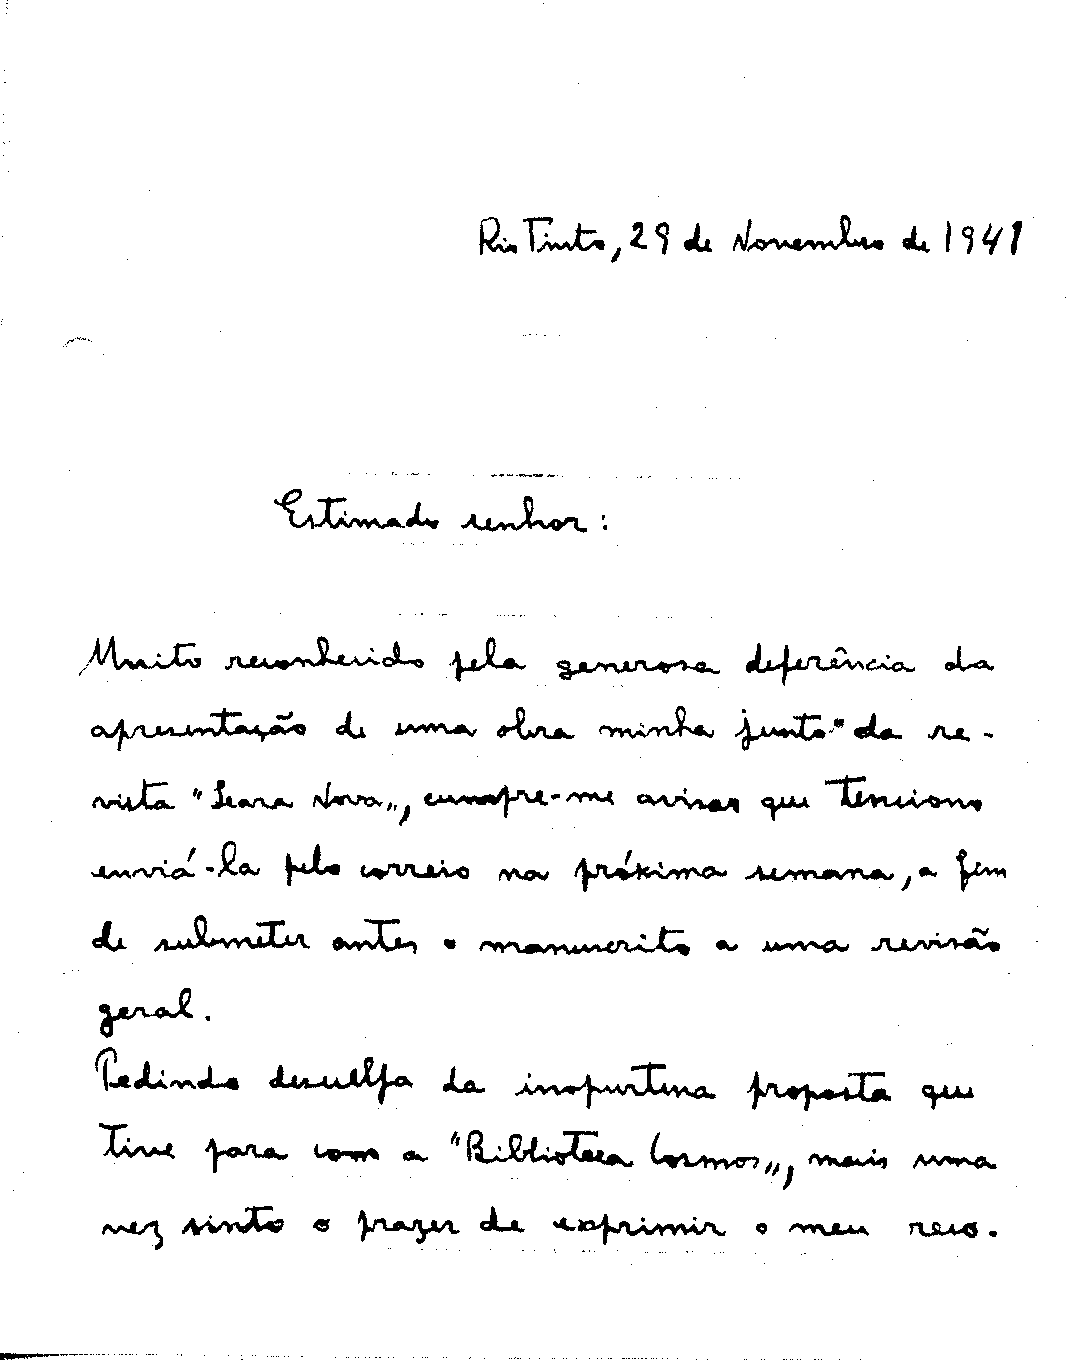 Rio Tinto, 29 de Novembro de 1941
Estimado senhor:
Muito reconhecido pela generosa deferência da
apresentação de uma obra minha junto da re-
vista "Seara Nova", cumpre-me avisar que tenciono
enviá-la pelo correio na próxima semana, a fim
de submeter antes o manuscrito a uma revisão
geral.
Pedindo desculpa da inoportuna proposta que
tive para com a "Biblioteca Cosmos", mais uma
vez sinto o prazer de exprimir o meu reco-